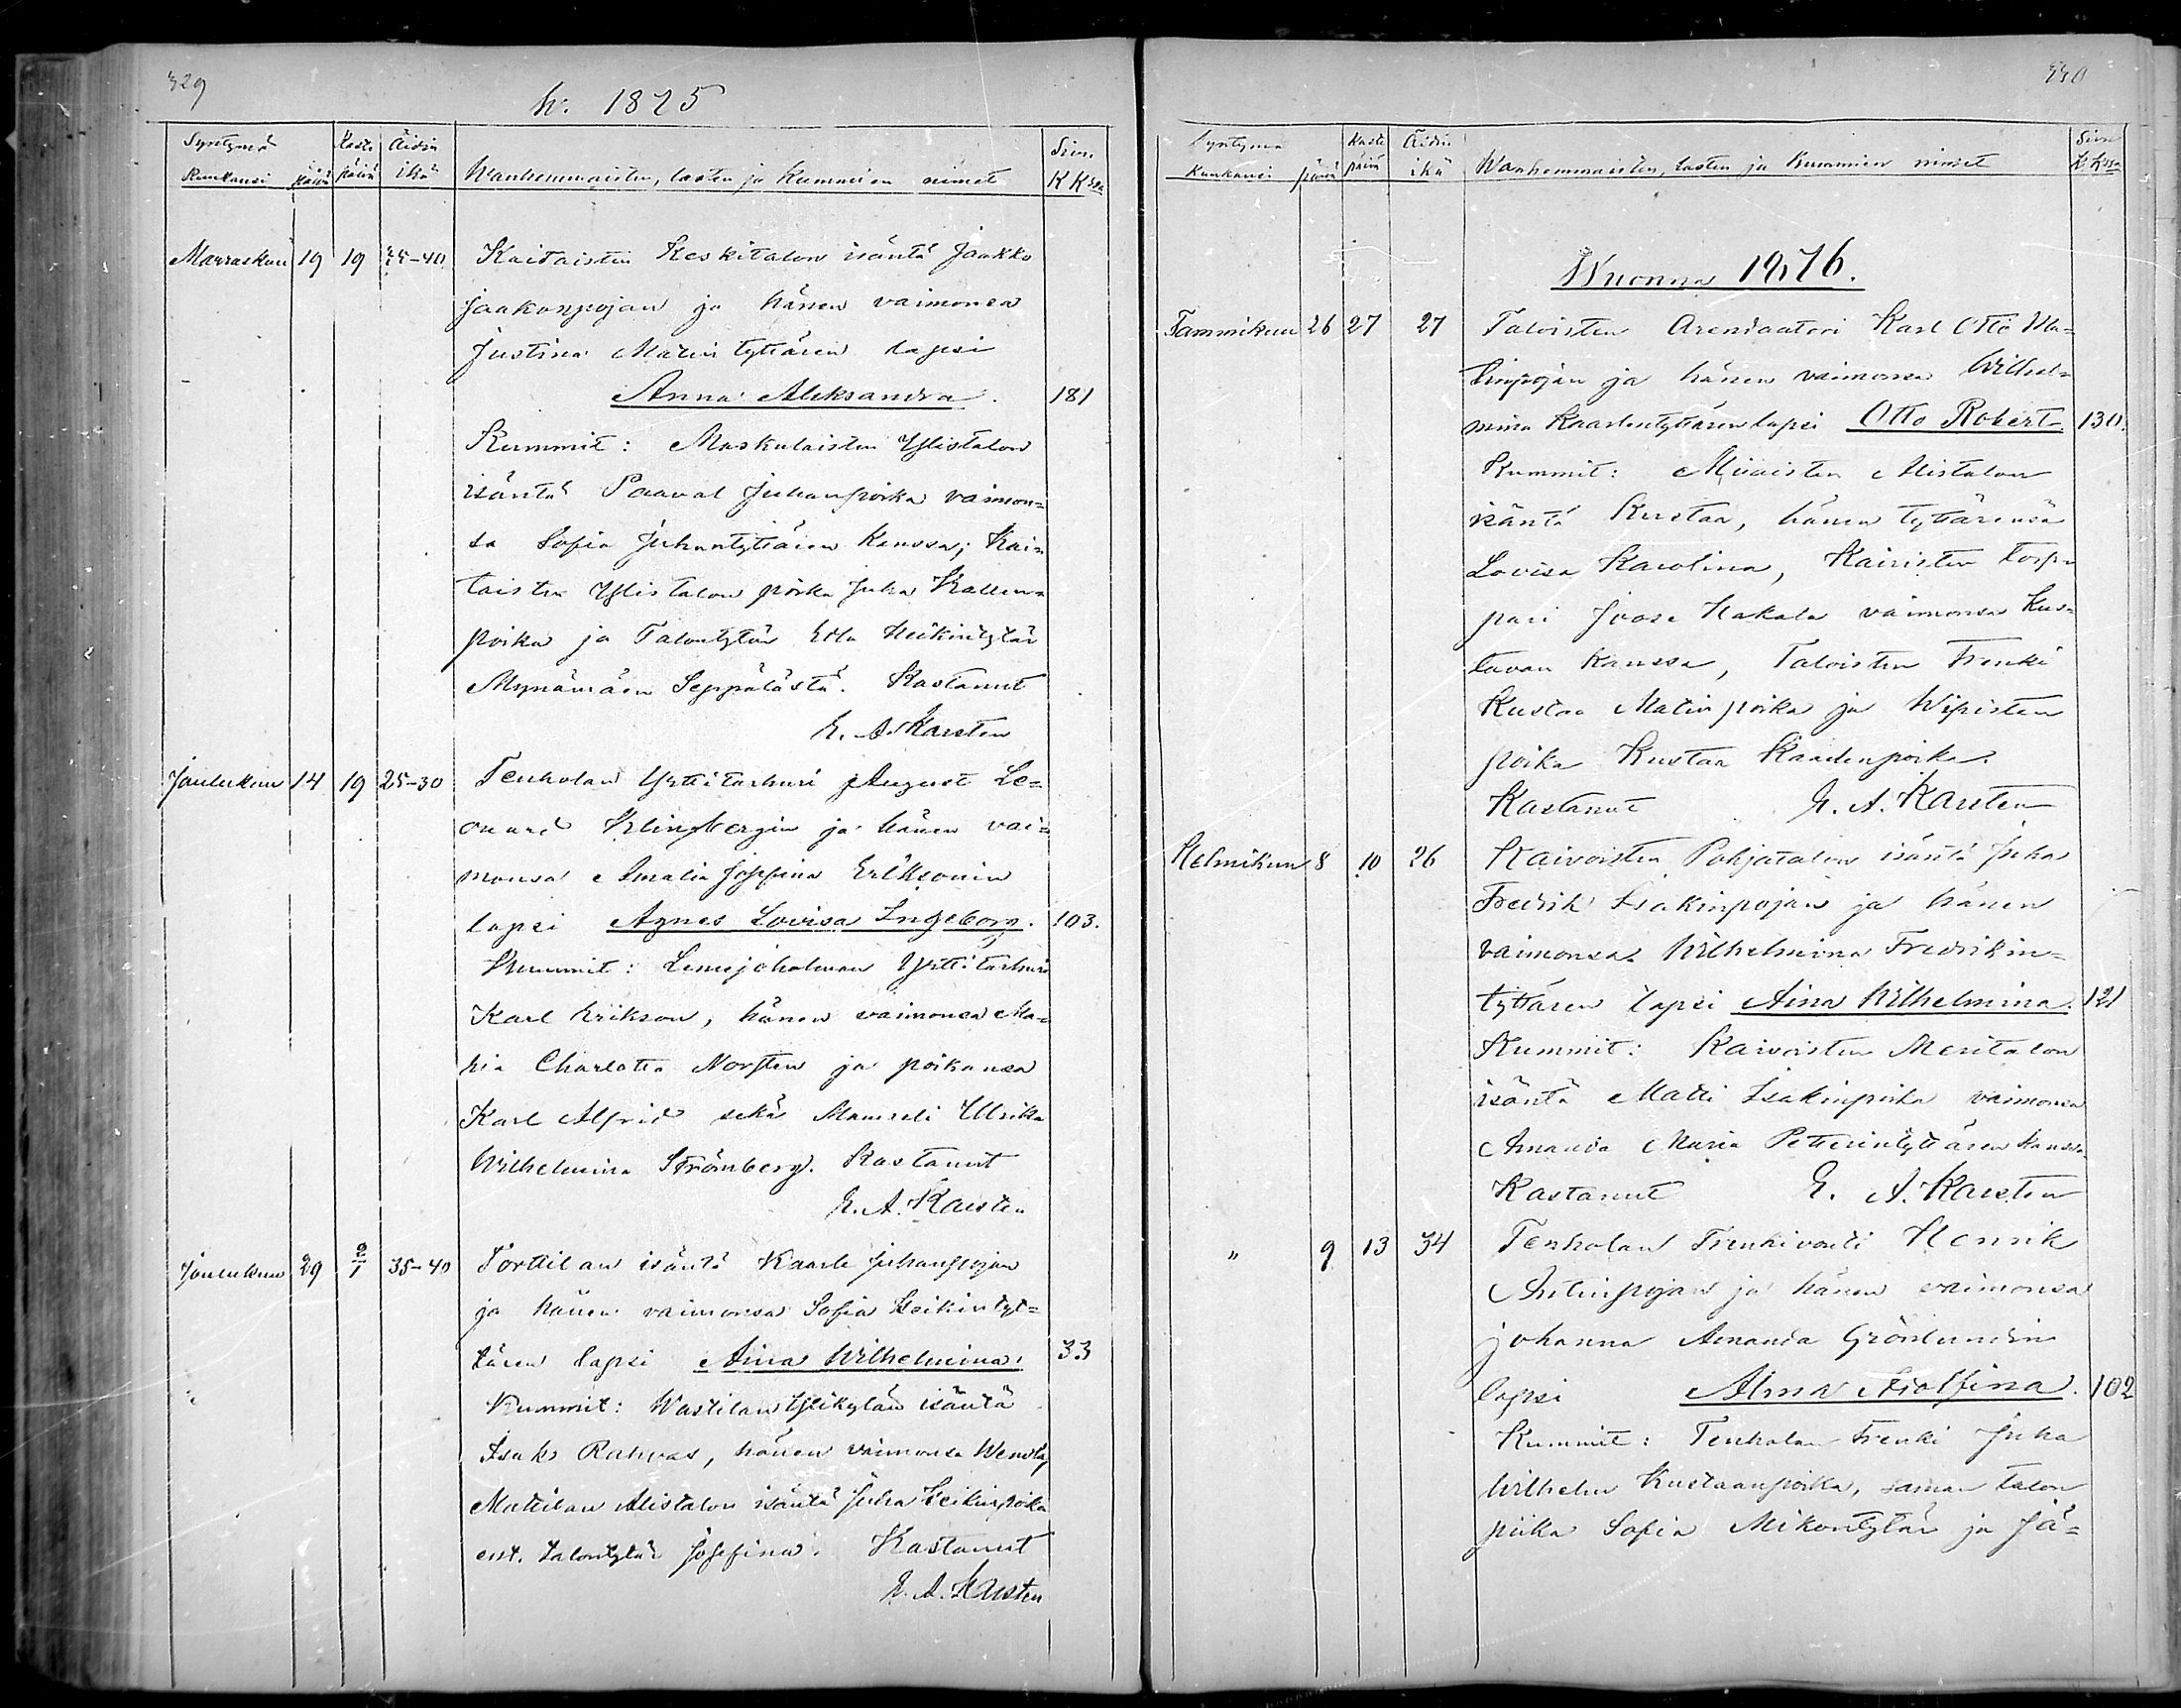 329
w. 1875
Syntymä Kaste Äidin Siv.
Kuukausi päivä päivä ikä Wanhemmaisten, lasten ja Kummien nimet K Kssa
Marraskuu 19 19 35-40 Kaitaisten Keskitalon isäntä Jaakko
Jaakonpojan ja hänen vaimonsa
Justina Matin tyttären lapsi
Anna Aleksandra. 181
Kummit: Maskulaisten Ylistalon
isäntä Paaval Juhanpoika vaimon=
sa Sofia Juhantyttären kanssa; Kai=
taisten Ylistalon poika Juha Kallen=
poika ja Talontytär Edla Heikintytär
Mynämäen Seppälästä. Kastanut
E. A. Karsten
Joulukuu 14 19 25-30 Tenholan Yrttitarhuri August Le=
onard Klingbergin ja hänen vai=
monsa Amalia Josefina Eriksonin
lapsi Agnes Lovisa Ingeborg. 103.
Kummit: Lemsjoholman Yrttitarhuri
Karl Erikson, hänen vaimonsa Ma=
ria Charlotta Norsten ja poikansa
Karl Alfrid sekä Mamseli Ulrika
Wilhelmina Strömberg. Kastanut
E. A. Karsten
Joulukuu 29 2/1 35-40 Torttilan isäntä Kaarle Juhanpojan
ja hänen vaimonsa Sofia Heikintyt=
tären lapsi Aina Wilhelmina. 33
Kummit: Wastilan Ylikylän isäntä
Isak Rahvas, hänen vaimonsa Wendla,
Mattilan Alistalon isäntä Juha Heikinpoika
ent. talontytär Josefina. Kastanut
E. A. Karsten
330
Syntymä Kaste Äidin Siv.
Kuukausi päivä päivä ikä Wanhemmaisten, lasten ja Kummien nimet K Kssa
Wuonna 1876.
Tammikuu 26 27 27 Taloisten Arendaatori Karl Otto Ma=
tinpojan ja hänen vaimonsa Wilhel=
mina Kaarlentyttären lapsi Otto Robert. 130.
Kummit: Alistalon
isäntä Kustaa, hänen tyttärensä
Lovisa Karolina, Kairisten torp=
pari Joose Hakala vaimonsa Kus=
tavan kanssa, Taloisten Trenki
Kustaa Matin poika ja Wipisten
poika Kustaa Kaarlenpoika.
Kastanut E. A. Karsten
Helmikuu 8 10 26 Kaivoisten Pohjatalon isäntä Juha
Fredrik Isakinpojan ja hänen
vaimonsa Wilhelmina Fredrikin=
tyttären lapsi Aina Wilhelmina. 121
Kummit: Kaivoisten Meritalon
isäntä Matti Isakinpoika vaimonsa
Amanda Maria Petterintyttären kanssa
Kastanut E. A. Karsten
" 9 13 34 Tenholan Trenkivouti Henrik
Antinpojan ja hänen vaimonsa
Johanna Amanda Grönlundin
lapsi Alma Adolfina. 102
Kummit: Tenholan Trenki Juha
Wilhelm Kustaanpoika, saman talon
piika Sofia Mikontytär ja Jä=